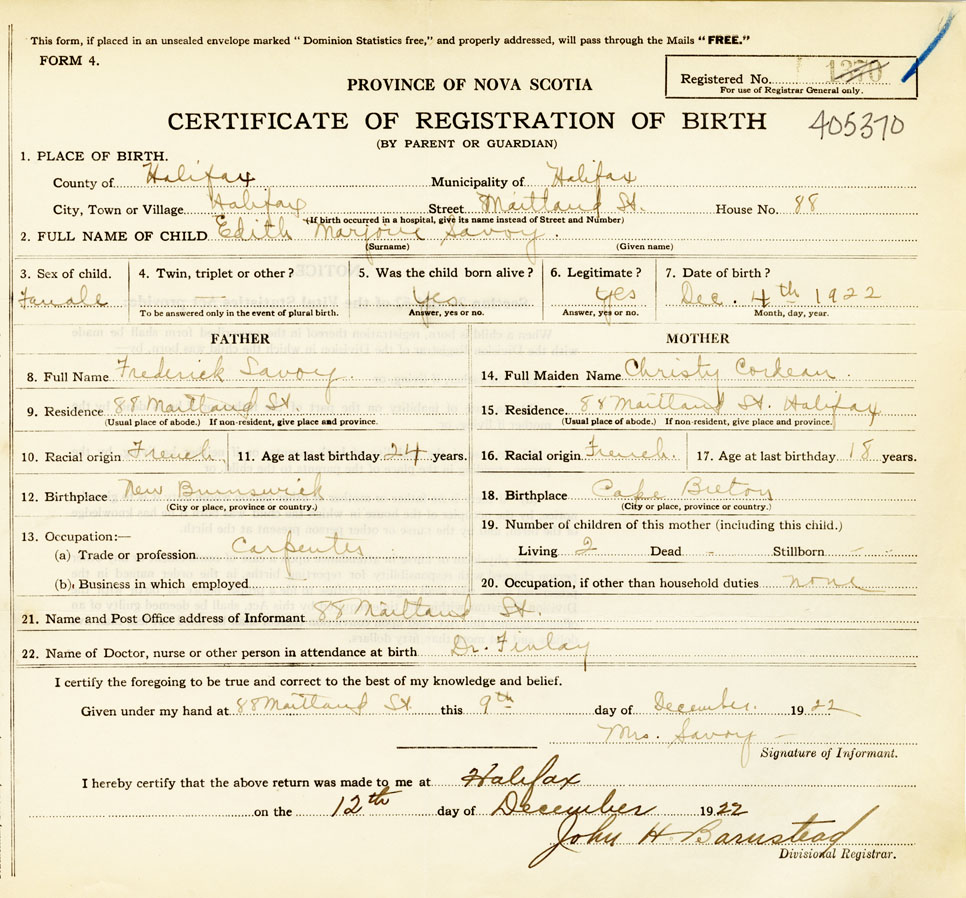 This form, if placed in an unsealed envelope marked "Dominion Statistics free," and properly addressed, will pass through the Mails "FREE."
FORM 4.
Registered No. 1270
For use of Registrar General only.
PROVINCE OF NOVA SCOTIA
CERTIFICATE OF REGISTRATION OF BIRTH 405370
(BY PARENT OR GUARDIAN)
1. PLACE OF BIRTH.
County of Halifax Municipality of Halifax
City, Town or Village Halifax Street Maitland St. House No. 88
(If birth occurred in a hospital, give its name instead of Street and Number)
2. FULL NAME OF CHILD Edith Marjorie Savoy.
(Surname) (Given name)
3. Sex of child. 4. Twin, triplet or other? 5. Was the child born alive? 6. Legitimate? 7. Date of birth?
Famale — Yes yes Dec. 4th 1922
To be answered only in the event of plural birth. Answer, yes or no. Answer, yes or no. Month, day, year.
FATHER MOTHER
8. Full Name Frederick Savoy. 14. Full Maiden Name Christy Cordeau.
9. Residence 88 Maitland St. 15. Residence. 88 Maitland St. Halifax
(Usual place of abode.) If non-resident, give place and province. (Usual place of abode.) If non-resident, give place and province.
10. Racial origin French 11. Age at last birthday 24 years. 16. Racial origin French. 17. Age at last birthday 18 years.
12. Birthplace New Brunswick 18. Birthplace Cape Breton
(City or place, province or country.) (City or place, province or country.)
19. Number of children of this mother (including this child.)
13. Occupation:—
(a) Trade or profession Carpenter Living 2 Dead - Stillborn -
(b) Business in which employed 20. Occupation, if other than household duties none
21. Name and Post Office address of Informant 88 Maitland St.
22. Name of Doctor, nurse or other person in attendance at birth Dr. Finlay
I certify the foregoing to be true and correct to the best of my knowledge and belief.
Given under my hand at 88 Maitland St this 9th day of December. 1922
Mrs. Savoy -
Signature of Informant.
I hereby certify that the above return was made to me at Halifax
on the 12th day of December 1922
John H. Barnstead
Divisional Registrar.